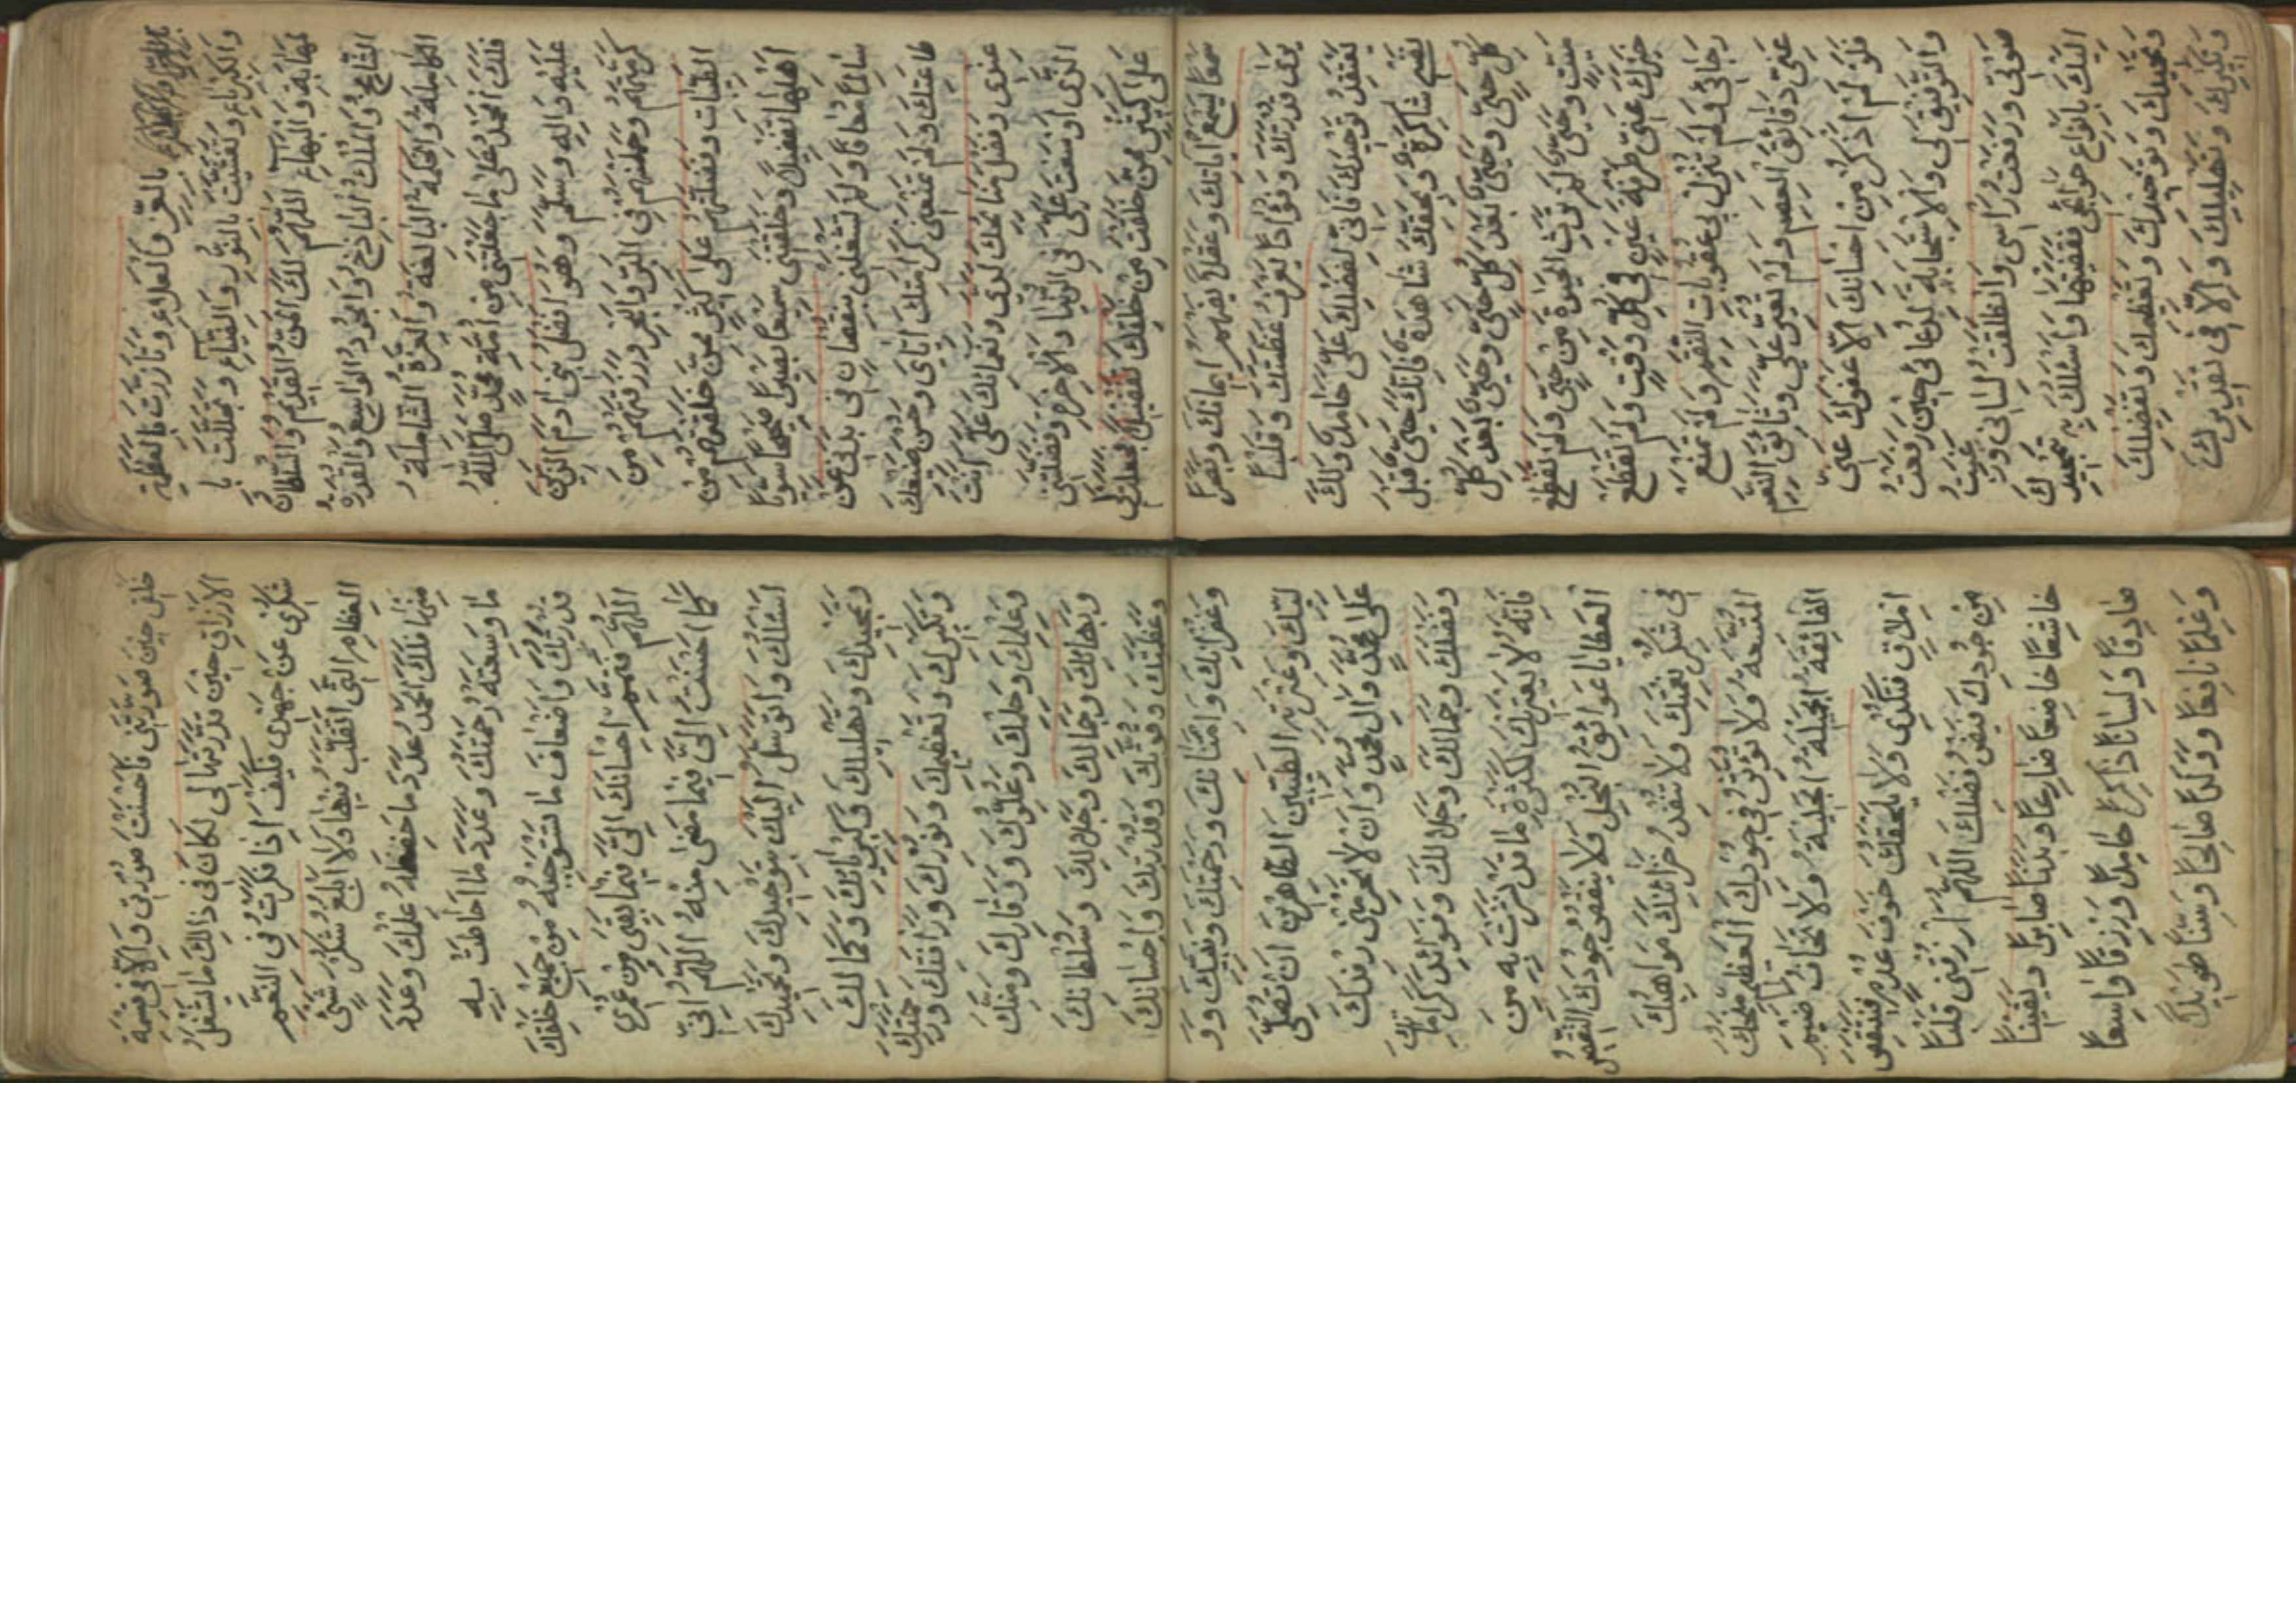 بِالْعِزِّ وَالْعَلَاءِ وَتَأَزَّرْتَ بِالْعَظَمَةِ
وَالْكِبْرِيَاءِ وَتَغَشَّيْتَ بِالنُّورِ وَالضِّيَاءِ وَتَجَلَّلْتَ بِا
لْمَهَابَةِ وَالْبَهَاءِ اَللّٰهُمَّ لَكَ الْمَنُّ الْقَدِيمُ وَالسُّلْطَانُ
الشَّامِخُ وَالْمُلْكُ الْبَاذِخُ وَالْجُودُ الْوَاسِعُ وَالْقُدْرَةُ
الْكَامِلَةُ وَالْحِكْمَةُ الْبَالِغَةُ وَالْعِزَّةُ الشَّامِلَةُ
فَلَكَ الْحَمْدُ عَلَى مَا جَعَلْتَنِي مِنْ اُمَّةِ مُحَمَّدٍ صَلَّى اللّٰهُ
عَلَيْهِ وَاٰلِهِ وَسَلَّمَ وَهُوَ اَفْضَلُ بَنِي اٰدَمَ الَّذِينَ
كَرَّمْتَهُمْ وَحَمَلْتَهُمْ فِي الْبَرِّ وَالْبَحْرِ وَرَزَقْتَهُمْ مِنَ
الطَّيِّبَاتِ وَفَضَّلْتَهُمْ عَلَى كَثِيرٍ مِمَّنْ خَلَقْتَهُمْ مِنْ
اَهْلِهَا تَفْضِيلًا وَخَلَقْتَنِي سَمِيعًا بَصِيرًا صَحِيحًا سَوِيًّا
سَالِمًا مُعَافًا وَلَمْ تَشْغَلْنِي بِنُقْصَانٍ فِي بَدَنِي عَنْ
طَاعَتِكَ وَلَمْ تَمْنَعْنِي كَرَامَتَكَ اِيَّايَ وَحُسْنَ صُنْعِكَ
عِنْدِي وَفَضْلَ مَنَائِحِكَ لَدَيَّ وَنَعْمَائِكَ عَلَيَّ اَنْتَ
الَّذِي اَوْسَعْتَ عَلَيَّ فِي الدُّنْيَا وَالْاٰخِرَةِ وَفَضَّلْتَنِي
عَلَى كَثِيرٍ مِمَّنْ خَلَقْتَ مِنْ خَلْقِكَ تَفْضِيلًا فَجَعَلْتَ لِي
سَمْعًا يَسْمَعُ اٰيَاتِكَ وَعَقْلًا يَفْهَمُ اِيمَانَكَ وَبَصَرًا
يَرَى قُدْرَتَكَ وَفُؤَادًا يَعْرِفُ عَظَمَتَكَ وَقَلْبًا
يَعْتَقِدُ تَوْحِيدَكَ فَاِنِّي لِفَضْلِكَ عَلَيَّ حَامِدٌ وَلَكَ
نَفْسِي شَاكِرَةٌ وَبِحَقِّكَ شَاهِدَةٌ فَاِنَّكَ حَيٌّ قَبْلَ
كُلِّ حَيٍّ وَحَيٌّ بَعْدَ كُلِّ حَيٍّ وَحَيٌّ بَعْدَ كُلِّ
مَيِّتٍ وَحَيٌّ لَمْ تَرِثِ الْحَيٰوةَ مِنْ حَيٍّ وَلَمْ تَقْطَعْ
خَيْرَكَ عَنِّي طَرْفَةَ عَيْنٍ فِي كُلِّ وَقْتٍ وَلَمْ تَقْطَعْ
رَجَائِي وَلَمْ تُنْزِلْ بِي عُقُوبَاتِ النِّقَمِ وَلَمْ تَمْنَعْ
عَنِّي دَقَائِقَ الْعِصَمِ وَلَمْ تُغَيِّرْ عَلَيَّ وَثَائِقَ النِّعَمِ
فَلَوْ لَمْ اَذْكُرْ مِنْ اِحْسَانِكَ اِلَّا عَفْوَكَ عَنِّي
وَالتَّوْفِيقَ لِي وَالْاِسْتِجَابَةَ لِدُعَائِي حِينَ رَفَعْتُ
صَوْتِي وَرَفَعْتُ رَاْسِي وَانْطَلَقْتَ لِسَانِي وَرَغِبْتُ
اِلَيْكَ بِاَنْوَاعِ حَوَائِجِي فَقَضَيْتَهَا وَاَسْئَلُكَ بِتَحْمِيدِكَ
وَتَمْجِيدِكَ وَتَوْحِيدِكَ وَتَعْظِيمِكَ وَتَفْضِيلِكَ
وَتَكْبِيرِكَ وَتَهْلِيلِكَ وَاِلَّا فِي تَقْدِيرِكَ
خَلْقِي حِينَ صَوَّرْتَنِي فَاَحْسَنْتَ صُورَتِي وَاِلَّا فِي قِسْمَةِ
الْاَرْزَاقِ حِينَ قَدَّرْتَهَا لِي لَكَانَ فِي ذَالِكَ مَا يَشْغَلُ
شُكْرِي عَنْ جُهْدِي فَكَيْفَ اِذَا فَكَّرْتُ فِي النِّعَمِ
الْعِظَامِ الَّتِي اَتَقَلَّبُ فِيهَا وَلَا اَبْلُغُ شُكْرَ شَيْءٍ
مِنْهَا فَلَكَ الْحَمْدُ عَدَدَ مَا حَفِظَهُ عِلْمُكَ وَعَدَدَ
مَا وَسِعَتْهُ رَحْمَتُكَ وَعَدَدَ مَا اَحَاطَتْ بِهِ
قُدْرَتُكَ وَاَضْعَافَ مَا تَسْتَوْجِبُهُ مِنْ جَمِيعِ خَلْقِكَ
اَللّٰهُمَّ فَتَمِّمْ اِحْسَانَكَ اِلَيَّ فِيمَا بَقِيَ مِنْ عُمْرِي
كَمَا اَحْسَنْتَ اِلَيَّ فِيمَا مَضَى مِنْهُ اَللّٰهُمَّ اِنِّي
اَسْئَلُكَ وَاَتَوَسَّلُ اِلَيْكَ بِتَوْحِيدِكَ وَتَحْمِيدِكَ
وَتَمْجِيدِكَ وَتَهْلِيلِكَ وَكِبْرِيَائِكَ وَكَمَالِكَ
وَتَكْبِيرِكَ وَتَعْظِيمِكَ وَنُورِكَ وَرَاْفَتِكَ وَرَحْمَتِكَ
وَعِلْمِكَ وَحِلْمِكَ وَعُلُوِّكَ وَوَقَارِكَ وَمَنِّكَ
وَبَهَائِكَ وَجَمَالِكَ وَجَلَالِكَ وَسُلْطَانِكَ
وَعَظَمَتِكَ وَقُوَّتِكَ وَقُدْرَتِكَ وَاِحْسَانِكَ
وَغُفْرَانِكَ وَامْتِنَانِكَ وَرَحْمَتِكَ وَنَبِيِّكَ وَوَ
لِيِّكَ وَعِتْرَتِهِ الطَّيِّبِينَ الطَّاهِرِينَ اَنْ تُصَلِّيَ
عَلَى مُحَمَّدٍ وَاٰلِ مُحَمَّدٍ وَاَنْ لَا تَحْرِمَنِي رِفْدَكَ
وَفَضْلَكَ وَجَمَالَكَ وَجَلَالَكَ وَفَوَائِدَ كَرَامَاتِكَ
فَاِنَّهُ لَا يَعْتَرِيكَ لِكَثْرَةِ مَا قَدْ نَشَرْتَ بِهِ مِنَ
الْعَطَايَا عَوَائِقُ الْبُخْلِ وَلَا يَنْقُصُ جُودَكَ التَّقْصِيرُ
فِي شُكْرِ نِعْمَتِكَ وَلَا تُنْفِدُ خَزَائِنَكَ مَوَاهِبُكَ
الْمُتَّسِعَةُ وَلَا تُؤَثِّرُ فِي جُودِكَ الْعَظِيمِ مِنَحُكَ
الْفَائِقَةُ الْجَمِيلَةُ الْجَلِيلَةُ وَلَا تَخَافُ ضَيْمَ
اِمْلَاقٍ فَتُكْدِيَ وَلَا يَلْحَقُكَ خَوْفُ عَدَمٍ فَيَنْقُصَ
مِنْ جُودِكَ فَيْضُ فَضْلِكَ اَللّٰهُمَّ ارْزُقْنِي قَلْبًا
خَاشِعًا خَاضِعًا ضَارِعًا وَبَدَنًا صَابِرًا وَيَقِينًا
صَادِقًا وَلِسَانًا ذَاكِرًا حَامِدًا وَرِزْقًا وَاسِعًا
وَعِلْمًا نَافِعًا وَوَلَدًا صَالِحًا وَسِنًّا طَوِيلًا